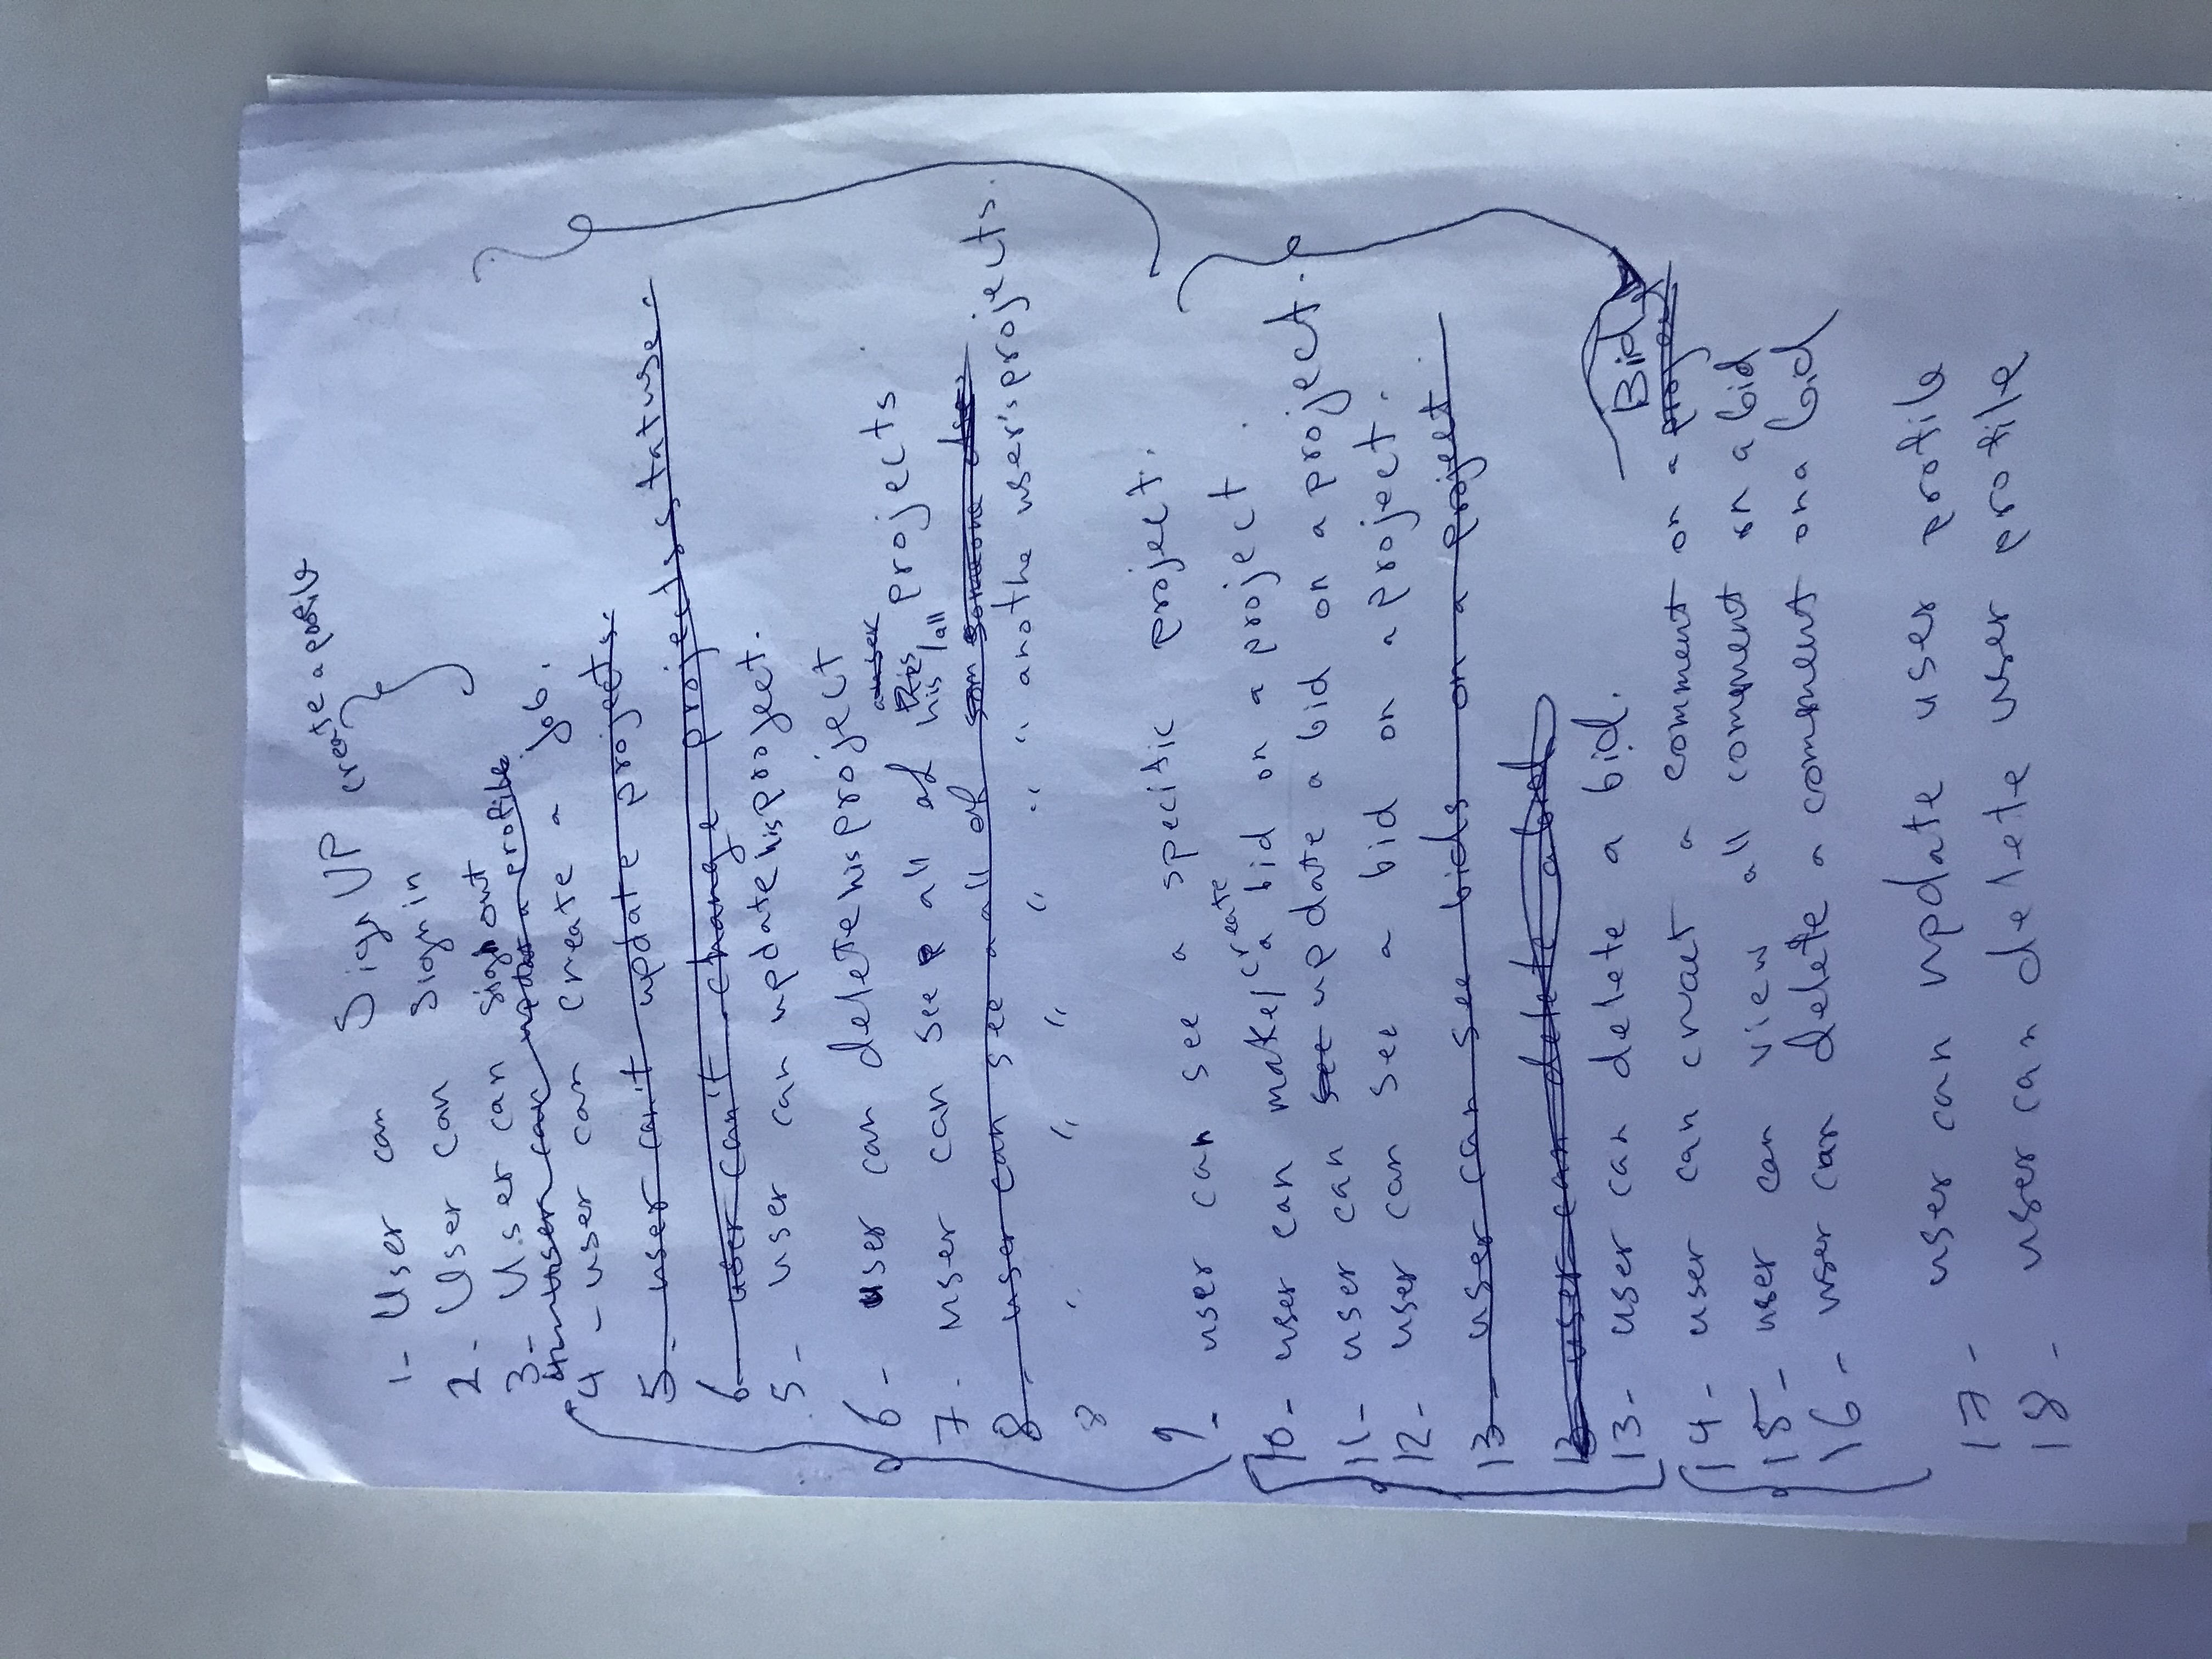 1- User can Sign UP create a profile
2- User can Sign in
3- User can sign out
4- user can updat a profile
4 - user can create a job.
5- user can't update projects.
6- user can't change projects statuse.
5- user can update his project.
6- user can delete his project
a user
7- user can see all of his /all projects
8- user can see a all of som someone else
8 " " " " " " anothe user's projects.
9- user can see a specific project.
10- user can make/create a bid on a project.
11- user can see update a bid on a project.
12- user can see a bid on a project.
13- user can see bids on a project
13 user can delete a bid
13- user can delete a bid.
Bid
14- user can craet a comment on a project
15- user can view all comment on a bid
16- user can delete a comment on a bid
17- user can update user profile
18- user can delete user profile